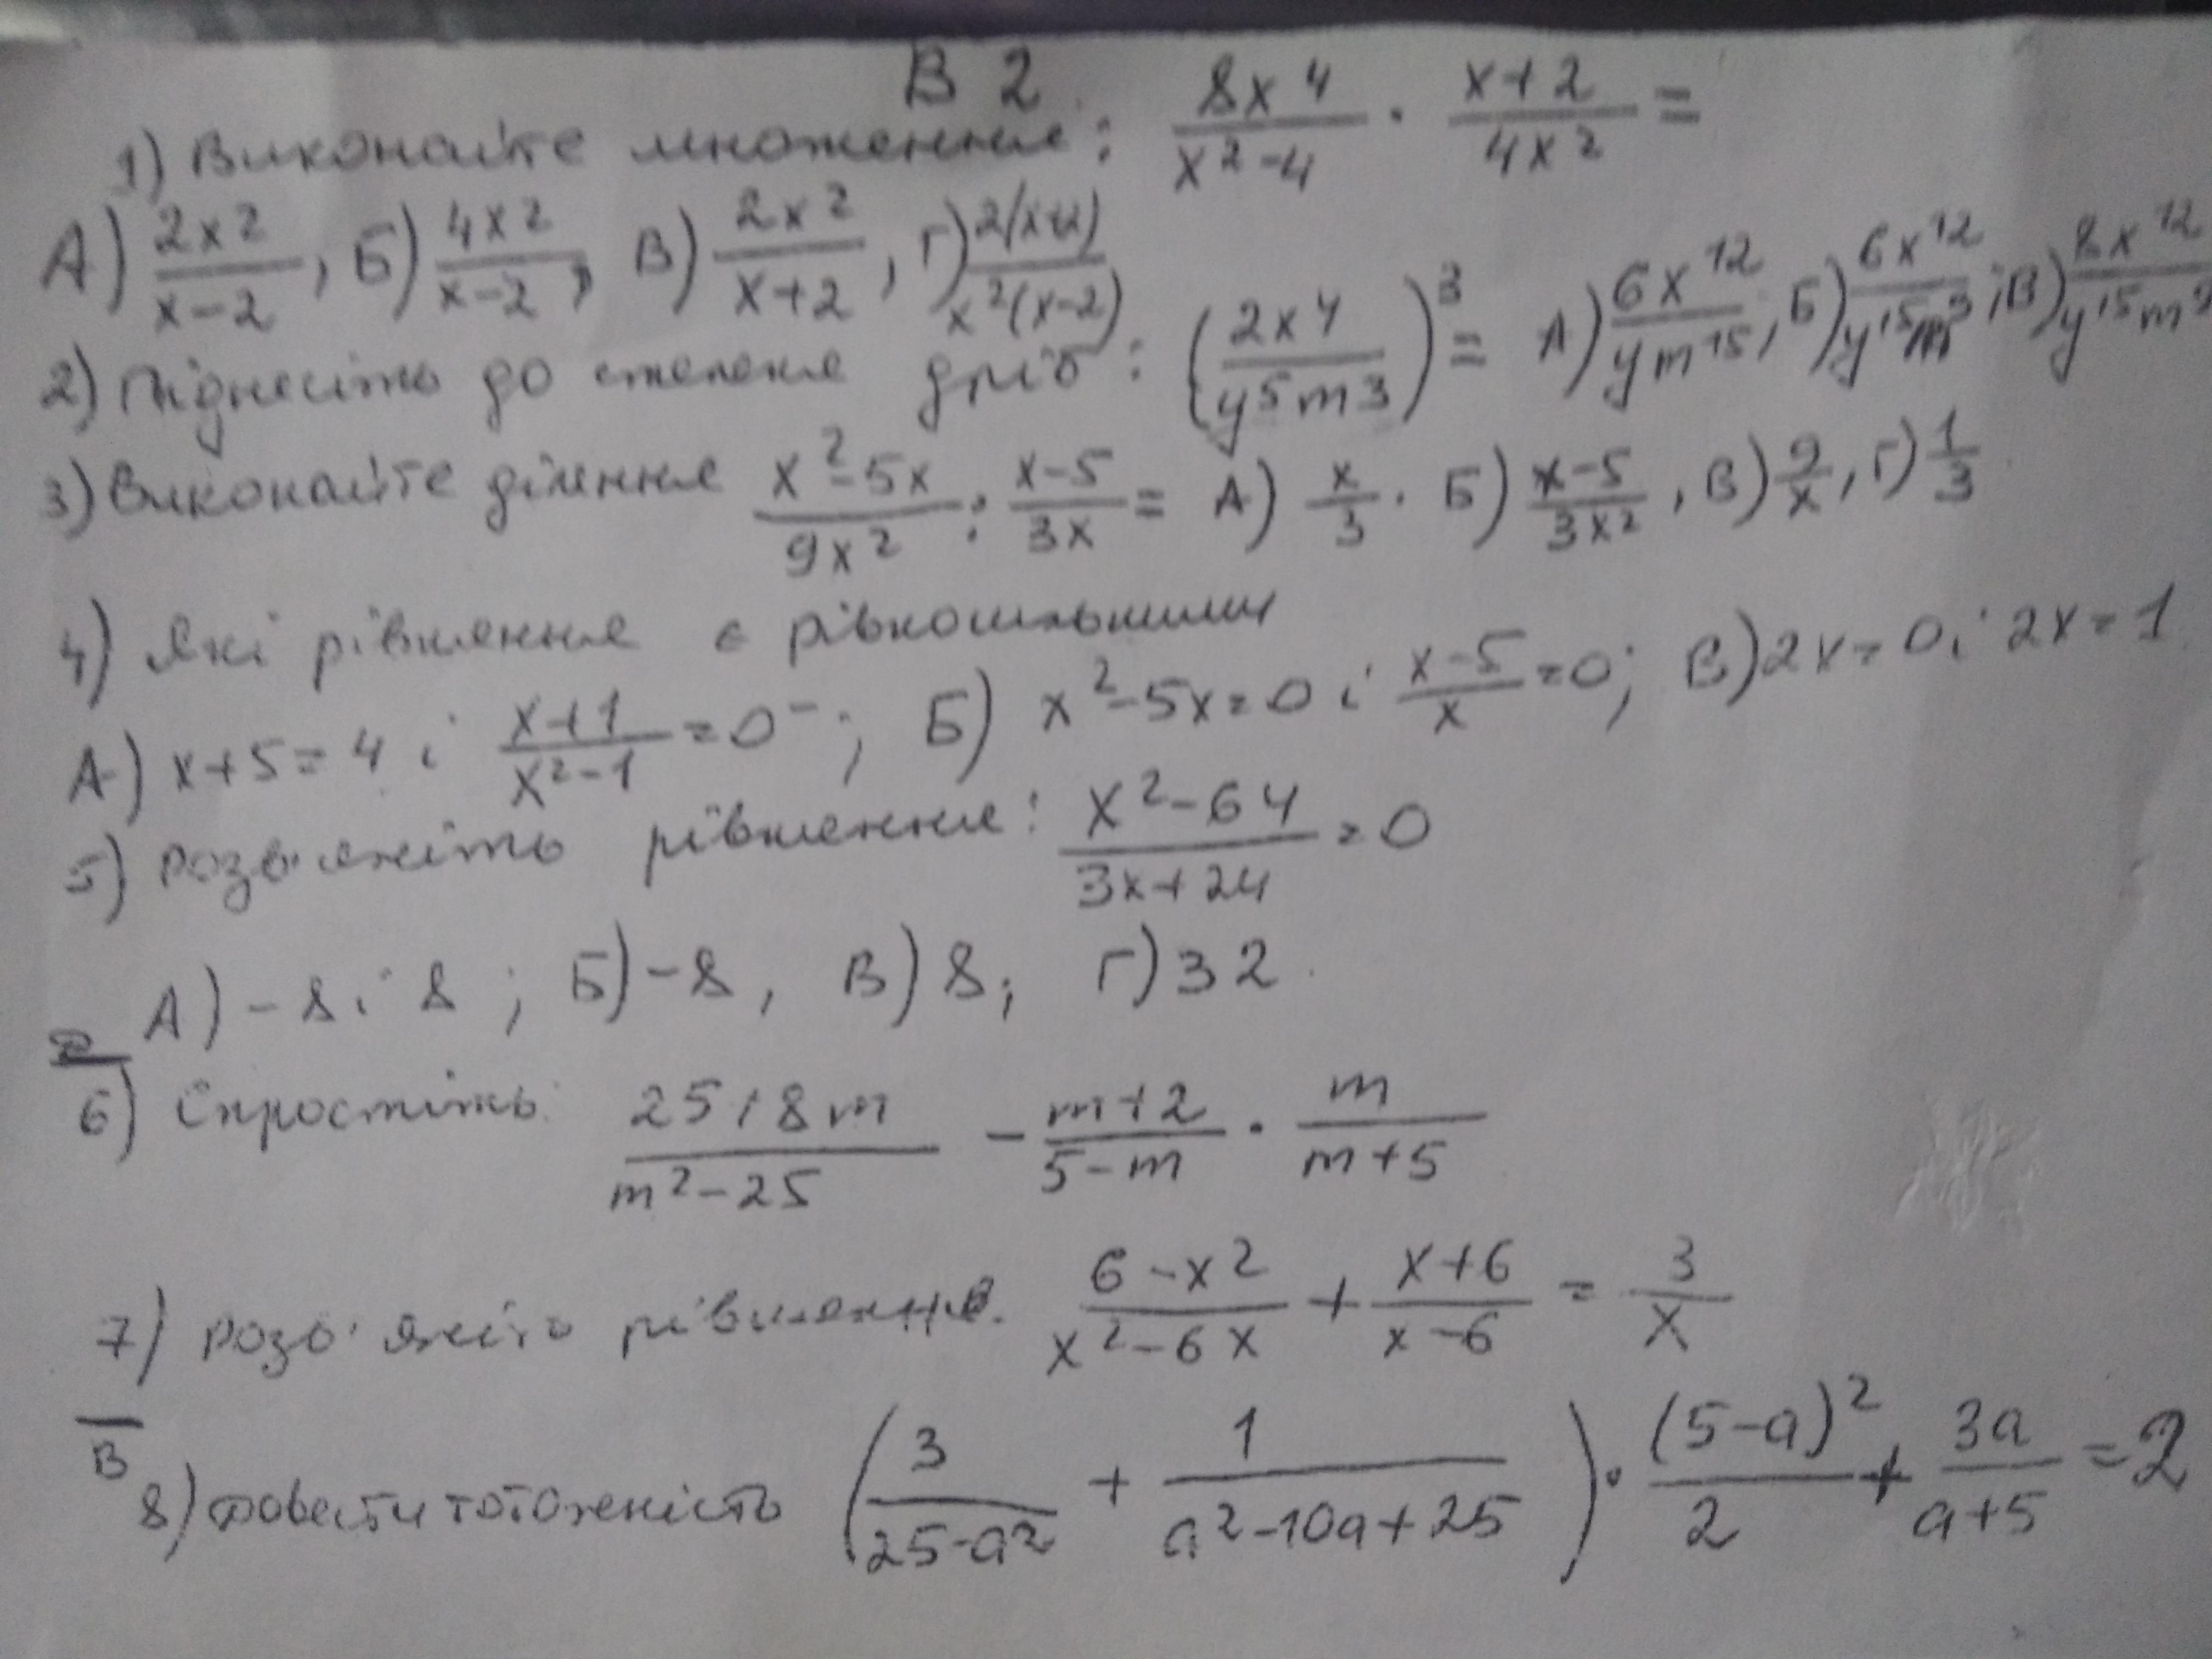 В 2.
1) Виконайте множення: 8x^4/(x^2-4) · (x+2)/(4x^2) =
А) 2x^2/(x-2), Б) 4x^2/(x-2), В) 2x^2/(x+2), Г) 2(x+2)/(x^2(x-2))
2) Піднесіть до степеня дріб: (2x^4/(y^5m^3))^3 = А) 6x^12/(ym^15), Б) 6x^12/(y^15m^9); В) 8x^12/(y^15m^9)
3) Виконайте ділення (x^2-5x)/(9x^2) : (x-5)/(3x) = А) x/3. Б) (x-5)/(3x^2), В) 9/x, Г) 1/3
4) Які рівняння є рівносильними
А) x+5=4 і (x+1)/(x^2-1)=0; Б) x^2-5x=0 і (x-5)/x=0; В) 2x=0 і 2x=1
5) Розв'яжіть рівняння: (x^2-64)/(3x+24)=0
А) -8 і 8; Б) -8, В) 8; Г) 32.
6) Спростіть: (25+8m)/(m^2-25) - (m+2)/(5-m) · m/(m+5)
7) Розв'яжіть рівняння. (6-x^2)/(x^2-6x) + (x+6)/(x-6) = 3/x
В
8) Довести тотожність (3/(25-a^2) + 1/(a^2-10a+25)) · (5-a)^2/2 + 3a/(a+5) = 2